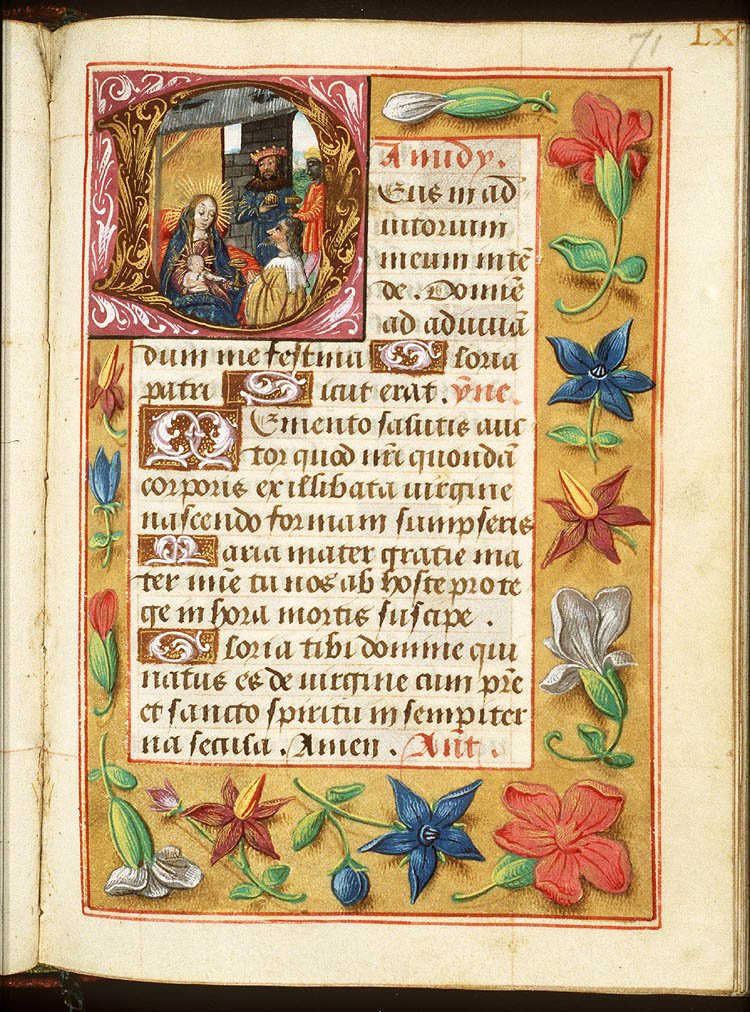 71 LX
A midy.
Eus in ad
iutorium
meum intē
de. Domīe
ad adiuuā
dum me festina Gloria
patri Sicut erat. ymē.
Memento salutis auc
tor quod nr̄i quondā
corporis ex illibata uirgine
nascendo formam sumpseris
Maria mater gratie ma
ter mīe tu nos ab hoste prote
ge in hora mortis suscipe.
Gloria tibi domine qui
natus es de uirgine cum pr̄e
et sancto spiritu in sempiter
na secula. Amen. AnT.